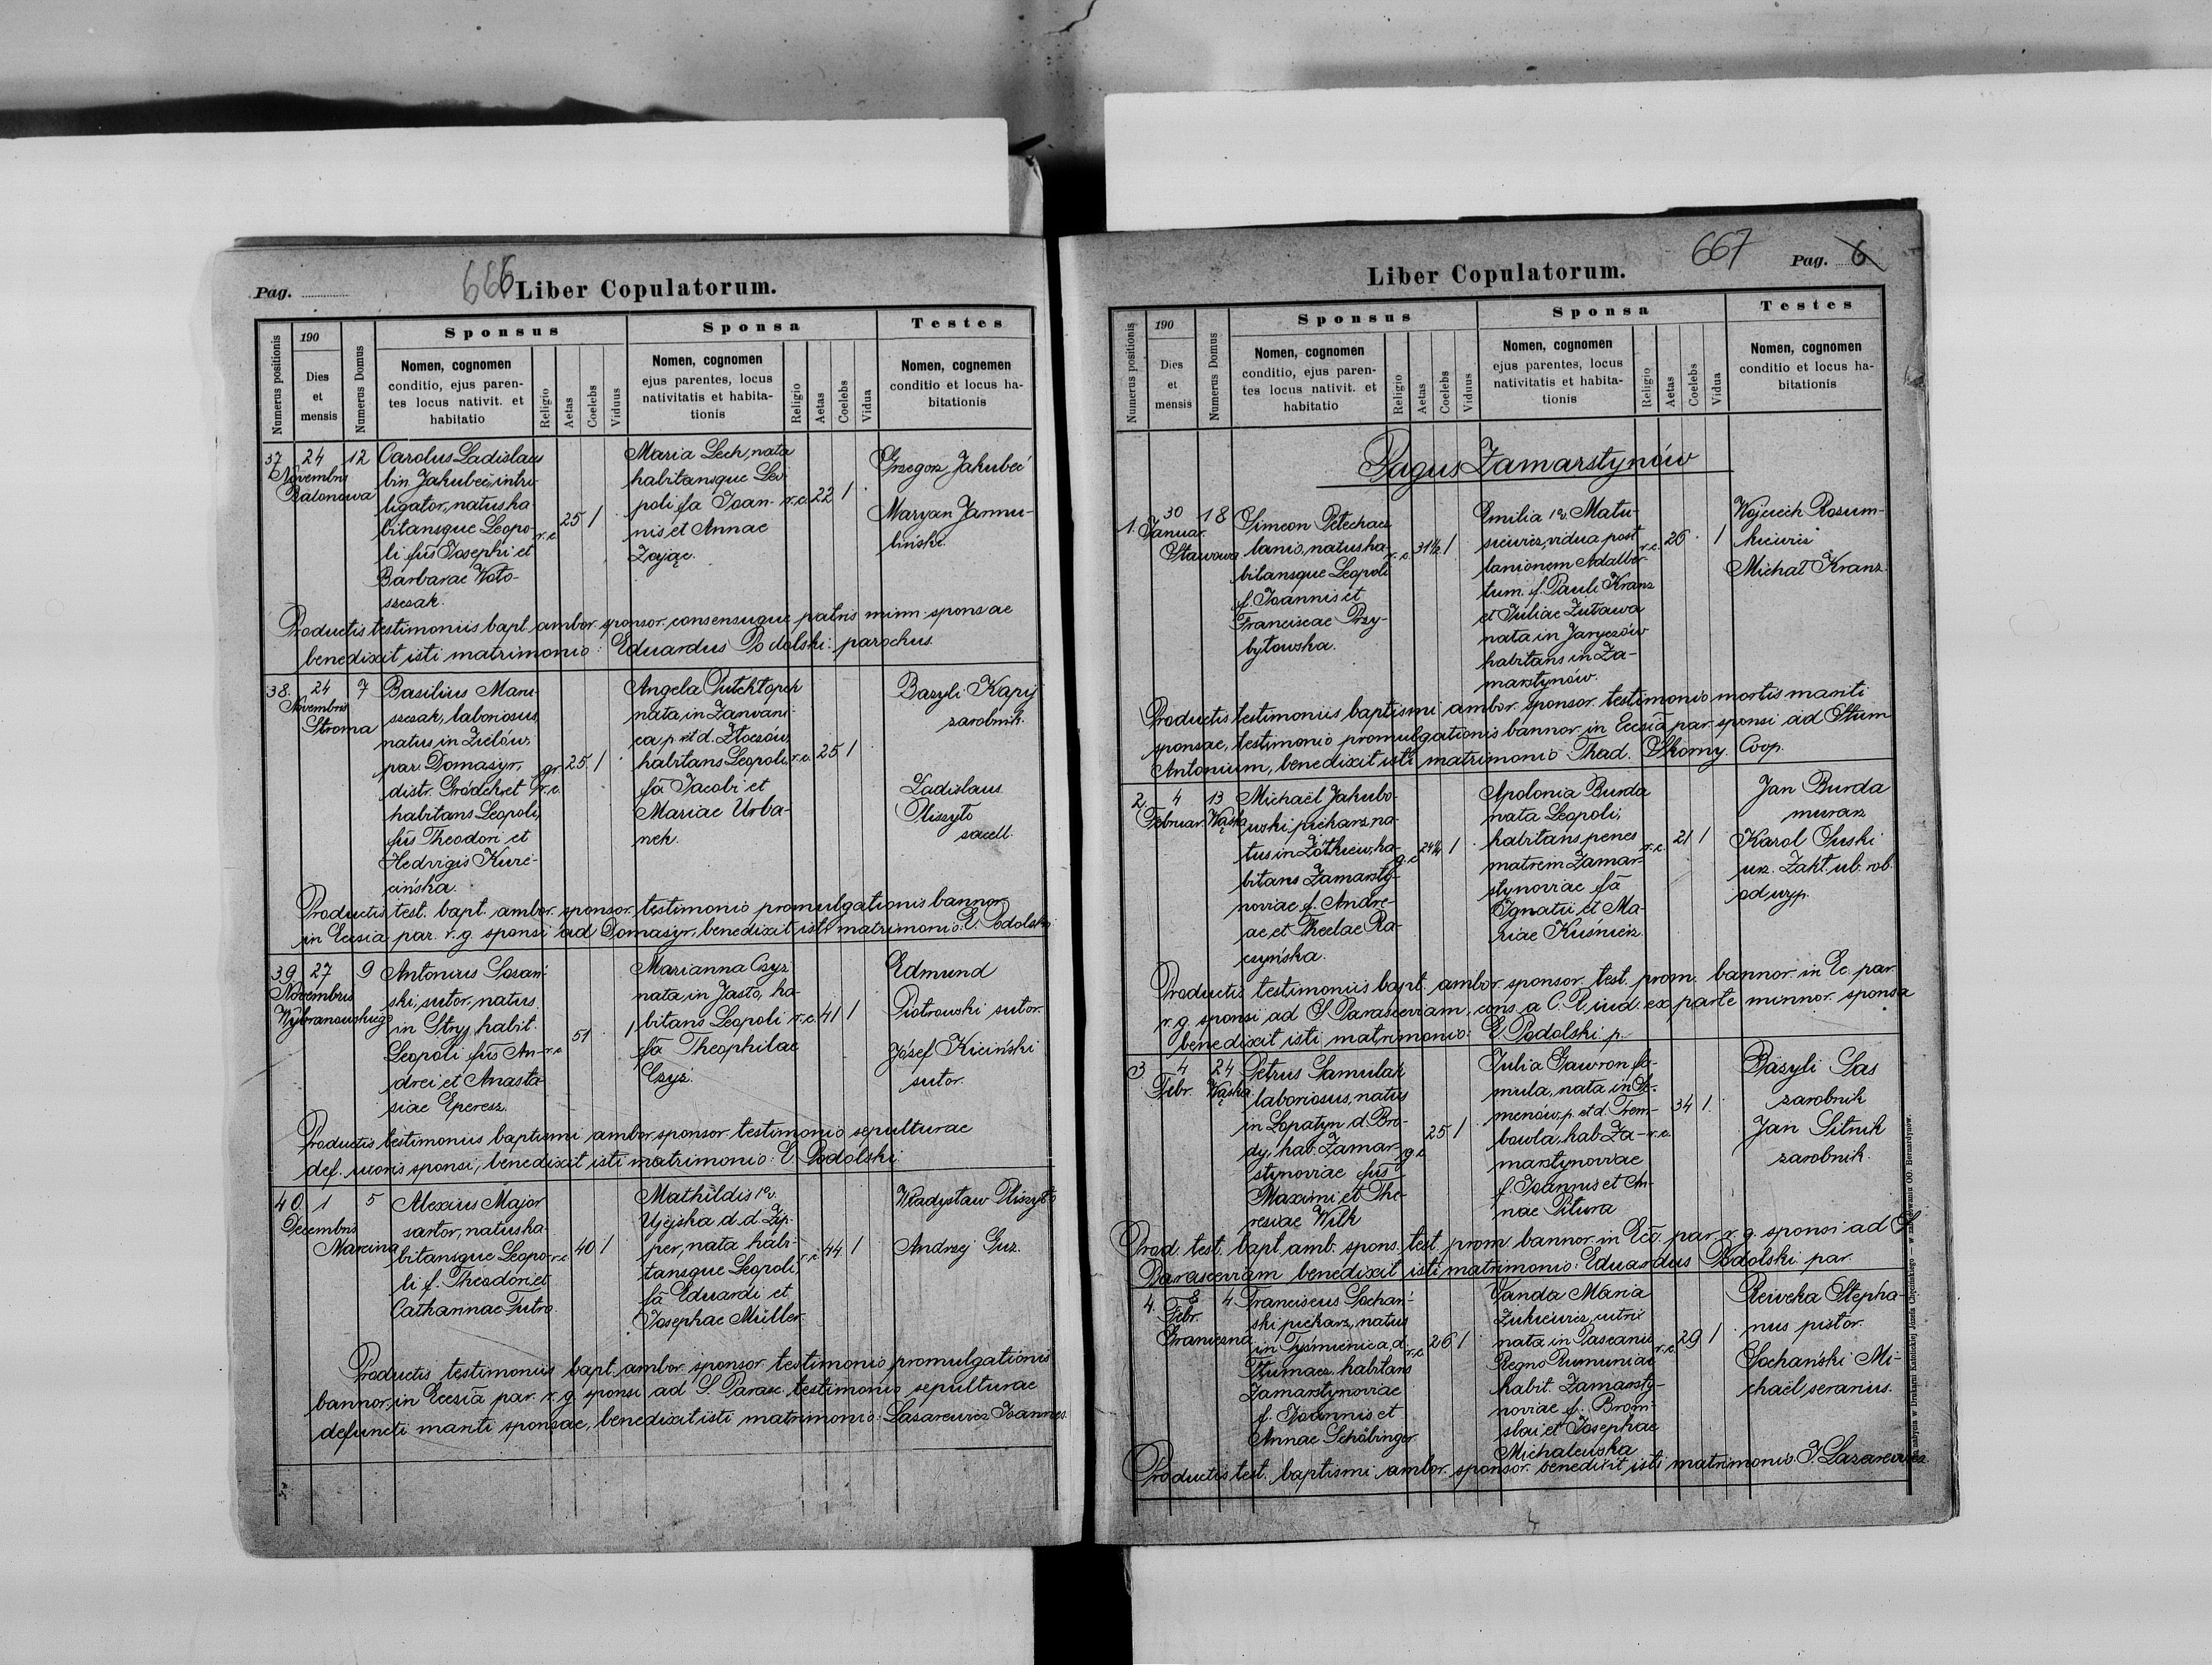 Pag.
666
Liber Copulatorum.
Numerus positionis
190
Dies
et
mensis
Numerus Domus
Sponsus
Nomen, cognomen
conditio, ejus paren-
tes locus nativit. et
habitatio
Religio
Aetas
Coelebs
Viduus
Sponsa
Nomen, cognomen
ejus parentes, locus
nativitatis et habita-
tionis
Religio
Aetas
Coelebs
Vidua
Testes
Nomen, cognemen
conditio et locus ha-
bitationis
37
24
Novembris
Balonowa
12
Carolus Ladislaus
bin. Jakubeć, intro
ligator, natus ha
bitansque Leopo-
li fius Josephi et
Barbarae Woło-
szczak.
r.c.
25
1
Maria Lech, nata
habitansque Leo
poli fa Joan-
nis et Annae
Zając.
r.c.
22
1
Grzegorz Jakubeć
Maryan Jarmu-
liński.
Productis testimoniis bapt. ambor. sponsor. consensuque patris minn. sponsae
benedixit isti matrimonio: Eduardus Podolski: parochus.
38.
24
Novembris
Stroma
7
Basilius Mani-
szczak, laboriosus,
natus in Zielów,
par. Domażyr,
distr. Gródek, et
habitans Leopoli,
fius Theodori et
Hedvigis Kuro-
cińska.
gr.
r.c.
25
1
Angela
nata in
ca p. et d. Złoczów,
habitans Leopoli,
fa Jacobi et
Mariae Urba-
nek.
r.c.
25
1
Bazyli Kapij
zarobnik.
Ladislaus
Pliszyło
sacell.
Productis test. bapt. ambor. sponsor. testimonio promulgationis bannor.
in Ecesia par. r. g. sponsi ad Domażyr, benedixit isti matrimonio: E. Podolski
39
27
Novembris
Wybranowskiego
9
Antonius Sosań-
ski, sutor, natus
in Stryj, habit.
Leopoli fius An-
drei et Anasta-
siae Eperesz.
r.c.
51
1
Marianna Czyż
nata in Jasło, ha-
bitans Leopoli
fa Theophilae
Czyż.
r.c.
41
1
Edmund
Piotrowski sutor.
Józef Kiciński
sutor.
Productis testimoniis baptismi ambor. sponsor. testimonio sepulturae
def. uxoris sponsi, benedixit isti matrimonio: E. Podolski.
40.
1
Decembris
Marcina
5
Alexius Major
sartor, natus ha-
bitansque Leopo-
li f. Theodori et
Catharinae Futro.
r.c.
40
1
Mathildis 1º v.
Ujejska d. d. Zip-
per, nata habi-
tansque Leopoli,
fa Eduardi et
Josephae Müller.
r.c.
44
1
Władysław Pliszyło
Andrzej Guz.
Productis testimoniis bapt. ambor. sponsor. testimonio promulgationis
bannor. in Ecesia par. r. g. sponsi ad S. Parasc. testimonio sepulturae
defuncti mariti sponsae, benedixit isti matrimonio: Łazarewicz Joannes.
667
Pag. 6
Liber Copulatorum.
Numerus positionis
190
Dies
et
mensis
Numerus Domus
Sponsus
Nomen, cognomen
conditio, ejus paren-
tes locus nativit. et
habitatio
Religio
Aetas
Coelebs
Viduus
Sponsa
Nomen, cognomen
ejus parentes, locus
nativitatis et habita-
tionis
Religio
Aetas
Coelebs
Vidua
Testes
Nomen, cognomen
conditio et locus ha-
bitationis
Pagus Zamarstynów
1.
30
Januar.
Stawowa
18
Simeon Petechacz
lanio, natus ha-
bitansque Leopoli
f. Joannis et
Franciscae Przy-
byłowska.
r.c.
31½
1
Emilia 1º v. Matu-
siewicz, vidua post
lanionem Adalber-
tum. f. Pauli Kranz
et Juliae Żuława
nata in Jaryczów
habitans in Za-
marstynów.
r.c.
26
1
Wojciech Rozum-
kiewicz
Michał Kranz.
Productis testimoniis baptismi ambor. sponsor. testimonio mortis mariti
sponsae, testimonio promulgationis bannor. in Ecesia par. sponsi ad Stum
Antonium, benedixit isti matrimonio: Thad. Skorny. Coop.
2.
4
Februar.
Wąska
13
Michaël Jakubo-
wski piekarz, na-
tus in Żółkiew, ha-
bitans Zamarsty-
noviae f. Andre-
ae, et Theclae Ra-
czyńska.
g.c.
24½
1
Apolonia Burda
nata Leopoli,
habitans penes
matrem Zamar-
stynoviae fa
Ignatii et Ma-
riae Kuśnierz.
r.c.
21
1
Jan Burda
murarz
Karol Suski
urz. Zakł. ub. rob.
od wyp.
Productis testimoniis bapt. ambor. sponsor. test. prom. bannor. in Ec. par.
r. g. sponsi ad S. Parasceviam, cons. a C. R. iud. ex parte minnor. sponsa
benedixit isti matrimonio: E. Podolski p.
3
4
Febr.
Wąska
24
Petrus Samulak
laboriosus, natus
in Łopatyn d. Bro-
dy, hab. Zamar-
stynoviae fius
Maximi et The-
resiae Wilk
g.c.
25
1
Julia Gawron fa-
mula, nata in Se-
menów, p. et d. Trem-
bowla, hab. Za-
marstynoviae
f. Joannis et An-
nae Pitura
r.c.
34
1.
Bazyli Sas
zarobnik
Jan Sitnik
zarobnik.
Prod. test. bapt. amb. spons. test. prom. bannor. in Ecc. par. r. g. sponsi ad S.
Parasceviam benedixit isti matrimonio: Eduardus Podolski par.
4.
8
Febr.
Graniczna
4.
Franciscus Sochań-
ski piekarz, natus
in Tyśmienica, d.
Tłumacz, habitans
Zamarstynoviae
f. Joannis et
Annae Schöbinger.
r.c.
26
1
Vanda Maria
Żukiewicz, nutrix
nata in Pascanie
Regno Rumuniae
habit. Zamarsty-
noviae f. Broni-
slai et Josephae
Michalewska
r.c.
29
1
Reiweka Stepha-
nus pistor.
Sochański Mi-
chaël, serarius.
Productis test. baptismi ambor. sponsor. benedixit isti matrimonio: J. Łazarewicz